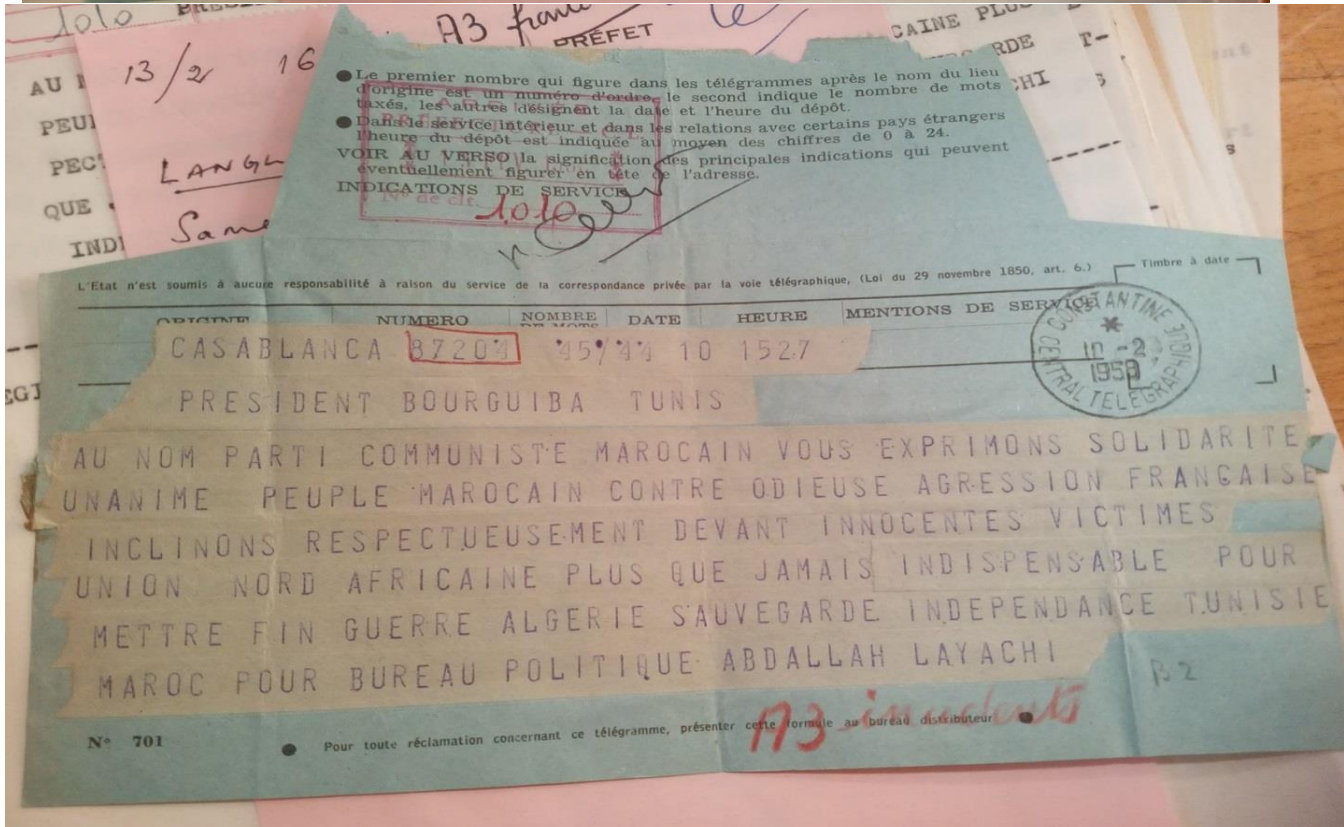 1010
A3
PRÉFET
CAINE PLUS
RDE T-
13/2 16
AU
CHI S
PEU
PEC
QUE
INDI
LANG
Same
● Le premier nombre qui figure dans les télégrammes après le nom du lieu
d'origine est un numéro d'ordre, le second indique le nombre de mots
taxés, les autres désignent la date et l'heure du dépôt.
● Dans le service intérieur et dans les relations avec certains pays étrangers
l'heure du dépôt est indiquée au moyen des chiffres de 0 à 24.
VOIR AU VERSO la signification des principales indications qui peuvent
éventuellement figurer en tête de l'adresse.
INDICATIONS DE SERVICE
N° de clt. 1010
L'Etat n'est soumis à aucune responsabilité à raison du service de la correspondance privée par la voie télégraphique, (Loi du 29 novembre 1850, art. 6.)
Timbre à date
ORIGINE NUMERO NOMBRE DE MOTS DATE HEURE MENTIONS DE SERVICE
CONSTANTINE
CENTRAL TELEGRAPHIQUE
10-2
1958
CASABLANCA 87204 45/44 10 1527
PRESIDENT BOURGUIBA TUNIS
AU NOM PARTI COMMUNISTE MAROCAIN VOUS EXPRIMONS SOLIDARITE
UNANIME PEUPLE MAROCAIN CONTRE ODIEUSE AGRESSION FRANCAISE
INCLINONS RESPECTUEUSEMENT DEVANT INNOCENTES VICTIMES
UNION NORD AFRICAINE PLUS QUE JAMAIS INDISPENSABLE POUR
METTRE FIN GUERRE ALGERIE SAUVEGARDE INDEPENDANCE TUNISIE
MAROC POUR BUREAU POLITIQUE ABDALLAH LAYACHI
B2
N° 701
● Pour toute réclamation concernant ce télégramme, présenter cette formule au bureau distributeur ●
A3 incidents